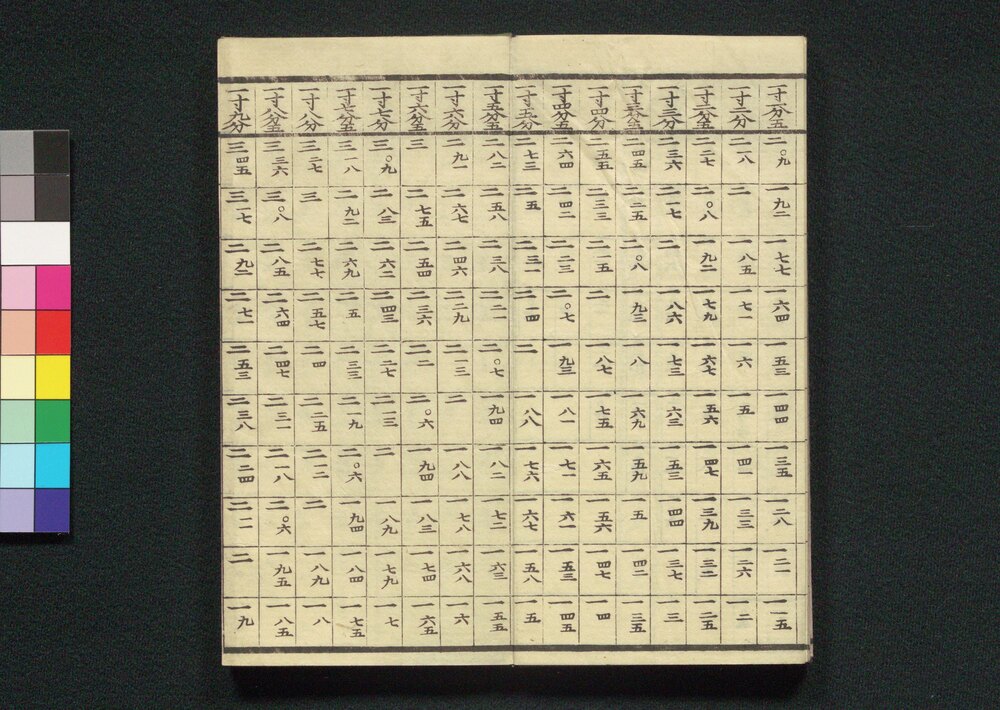 一寸一分五 二〇九 一九二 一七七 一六四 一五三 一四四 一三五 一二八 一二一 一一五
一寸二分 二一八 二 一八五 一七一 一六 一五 一四一 一三三 一二六 一二
一寸二分五 二二七 二〇八 一九二 一七九 一六七 一五六 一四七 一三九 一三二 一二五
一寸三分 二三六 二一七 二 一八六 一七三 一六三 一五三 一四四 一三七 一三
一寸三分五 二四五 二二五 二〇八 一九三 一八 一六九 一五九 一五 一四二 一三五
一寸四分 二五五 二三三 二一五 二 一八七 一七五 一六五 一五六 一四七 一四
一寸四分五 二六四 二四二 二二三 二〇七 一九三 一八一 一七一 一六一 一五三 一四五
一寸五分 二七三 二五 二三一 二一四 二 一八八 一七六 一六七 一五八 一五
一寸五分五 二八二 二五八 二三八 二二一 二〇七 一九四 一八二 一七二 一六三 一五五
一寸六分 二九一 二六七 二四六 二二九 二一三 二 一八八 一七八 一六八 一六
一寸六分五 三 二七五 二五四 二三六 二二 二〇六 一九四 一八三 一七四 一六五
一寸七分 三〇九 二八三 二六二 二四三 二二七 二一三 二 一八九 一七九 一七
一寸七分五 三一八 二九二 二六九 二五 二三三 二一九 二〇六 一九四 一八四 一七五
一寸八分 三二七 三 二七七 二五七 二四 二二五 二一二 二 一八九 一八
一寸八分五 三三六 三〇八 二八五 二六四 二四七 二三一 二一八 二〇六 一九五 一八五
一寸九分 三四五 三一七 二九二 二七一 二五三 二三八 二二四 二一一 二 一九